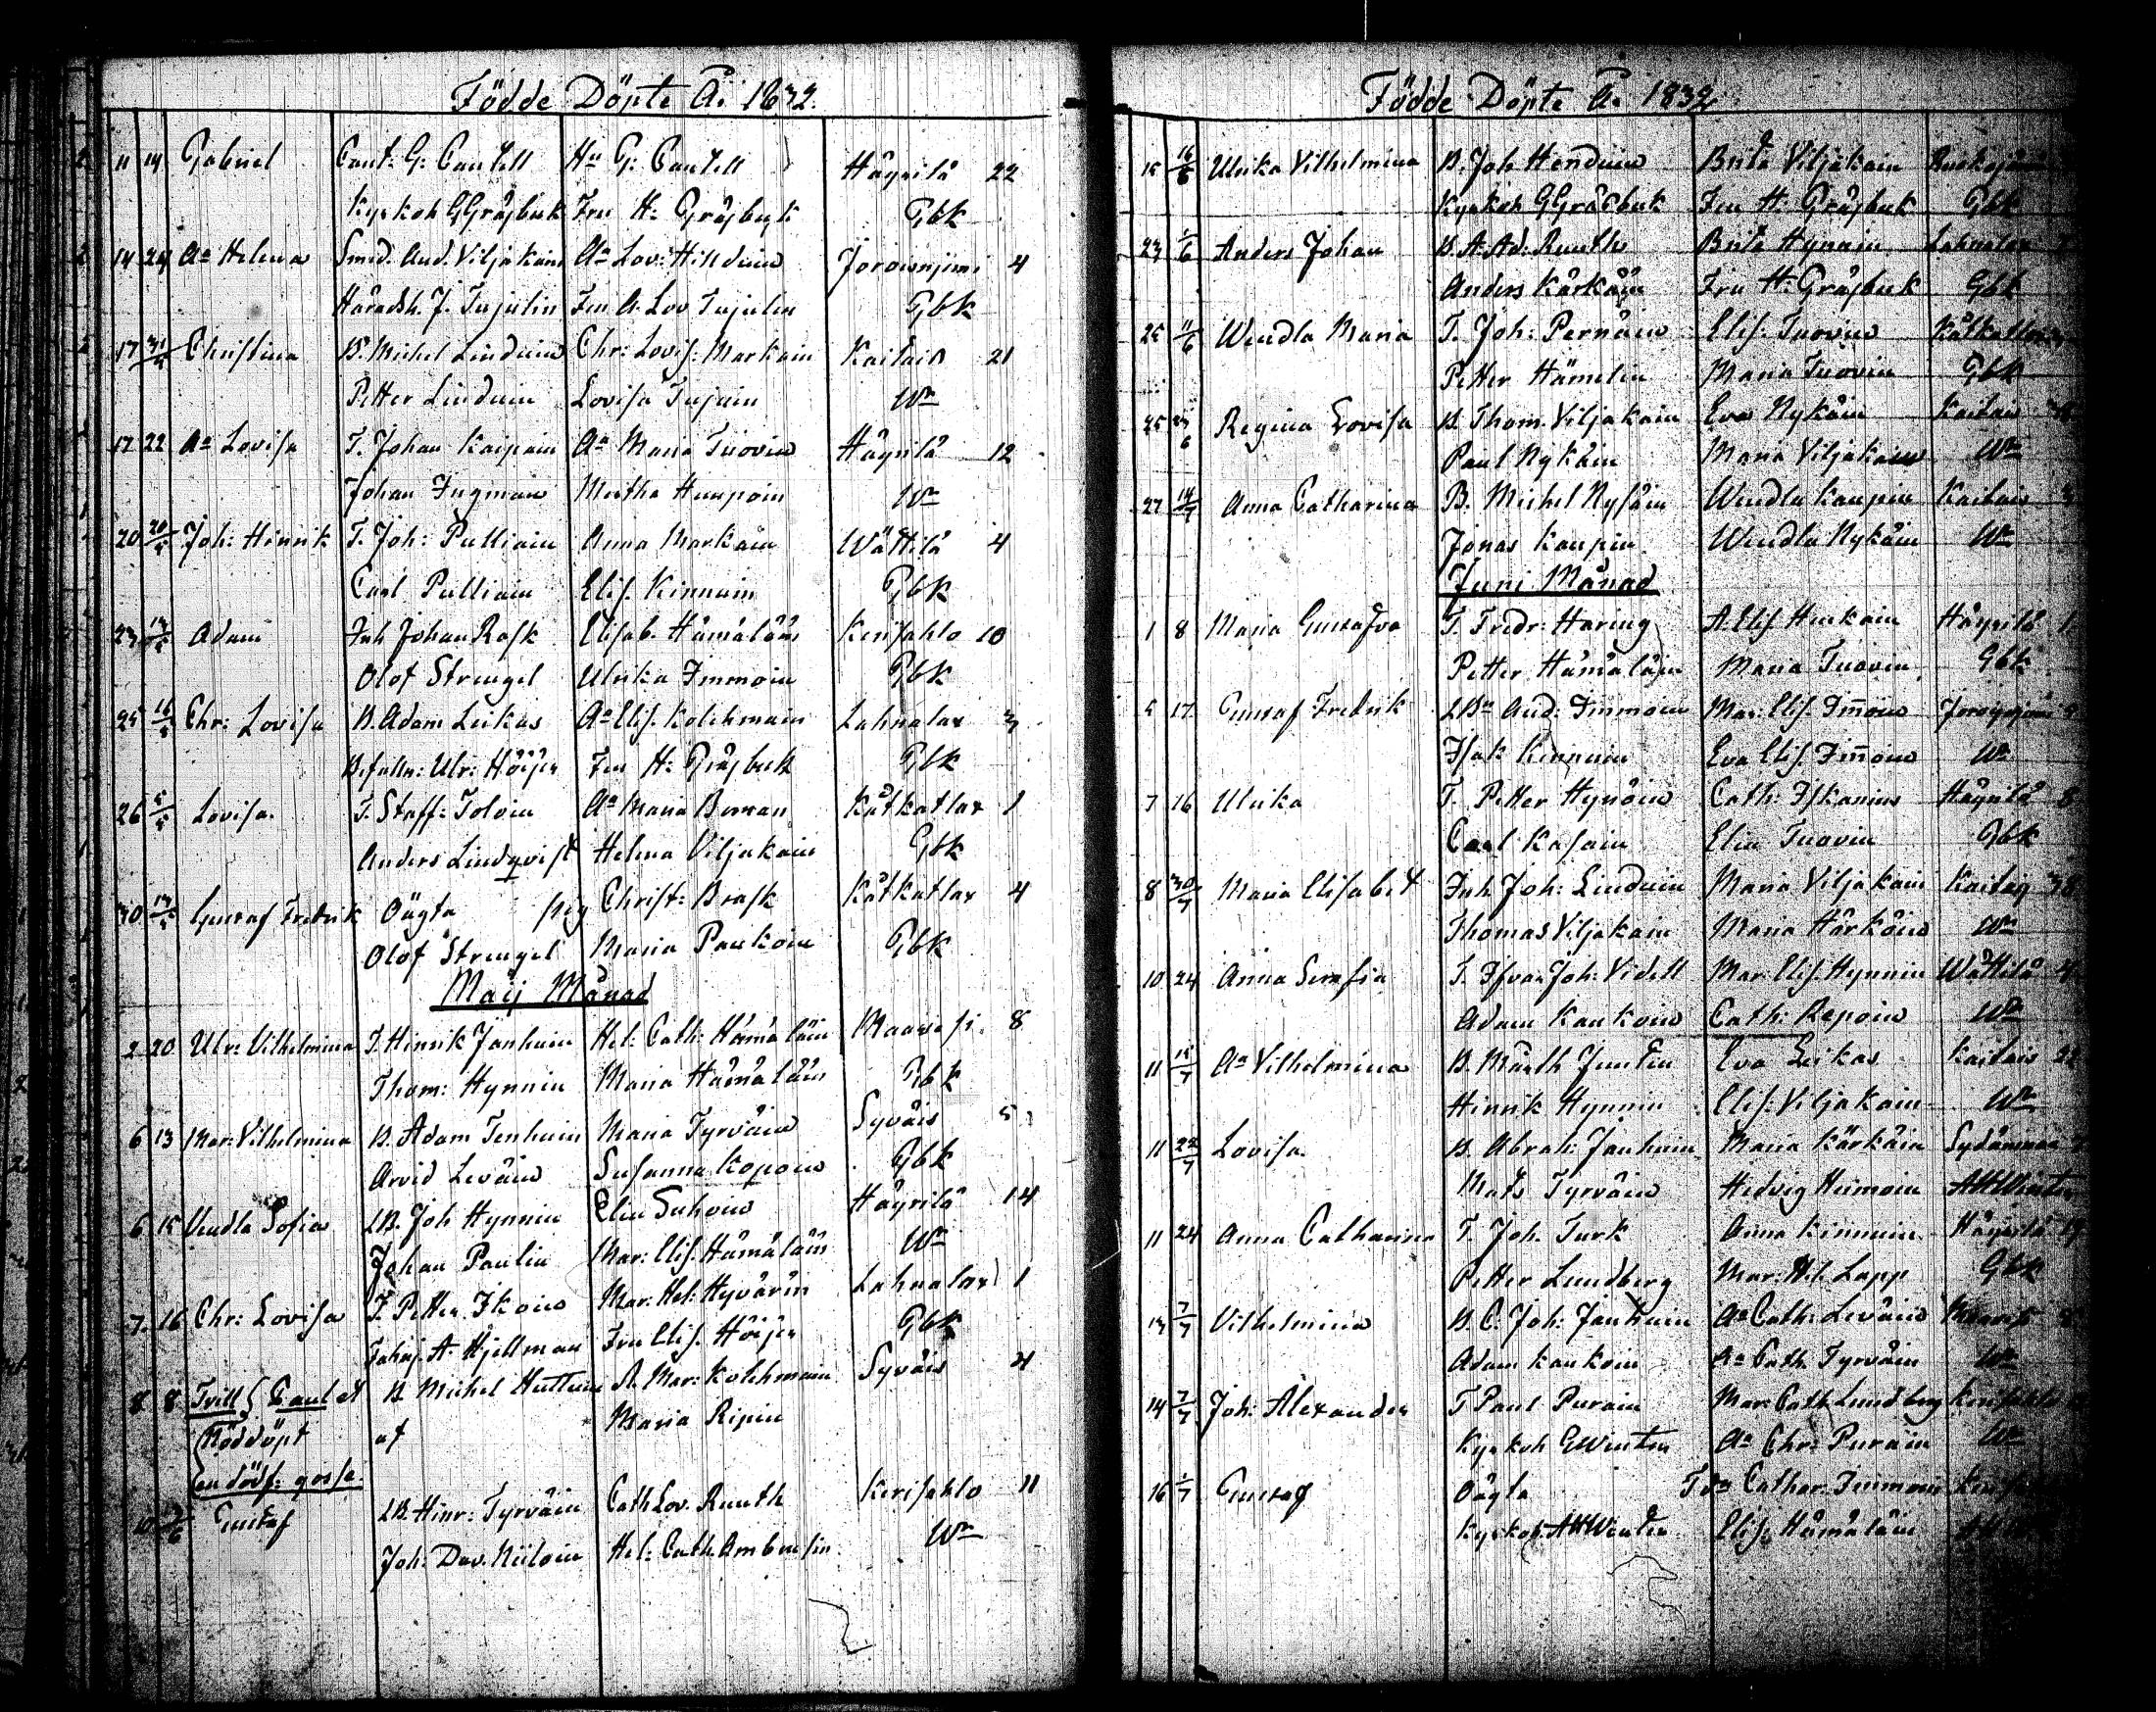 Födde Döpte År 1832.
11 14 Gabriel Cant: G: Cantell Hu G: Cantell Häyrilä 22
Kyrkoh G Gråsbeck Fru H: Gråsbeck Gbk
14 24 Aa Helena Smed. And. Viljakain Aa Lov: Hinduin Joroisnjemi 4
Häradsh. J. Tujulin Fru A. Lov Tujulin Gbk
17 Christina B. Michel Linduin Chr: Lovis: Markain Kaitais 21
Petter Linduin Lovisa Wn
17 22 Aa Lovisa T. Johan Kaipain Aa Maria Tuovin Häyrilä 12
Johan Ingmain Martha Wn
20 20/5 Joh: Hinrik T. Joh: Pulliain Anna Markain Wättilä 4
Carl Pulliain Elis. Kinnuin Gbk
23 13/5 Adam Inh Johan Rask Elisab. Hämäläin Kerisahlo 10
Olof Strengel Ulrika Immoin Gbk
25 Chr: Lovisa B. Adam Leikas Aa Elis. Kolehmain Lahnalax 3
Befalln: Ulr: Höijer Fru H: Gråsbeck Gbk
26 5/5 Lovisa. T. Staff: Toloin Aa Maria Boman Kätkatlax 1
Anders Lindqvist Helena Viljakain Gbk
30 13/5 Gustaf Fredrik Oägta pig Christ: Brask Kätkatlax 4
Olof Strengel Maria Paukoin Gbk
Maij Månad
2 20 Ulr: Vilhelmina T. Hinrik Janhuin Hel: Cath: Hämäläin Maavesi. 8
Thom: Hynnin Maria Hämäläin Gbk
6 13 Mar: Vilhelmina B. Adam Tenhuin Maria Tyrväin Syväis 5
Arvid Leväin Susanna Kopoin Gbk
6 15 Vendla Sofia LB. Joh Hynnin Elin Suhoin Häyrilä 14
Johan Paulin Mar: Elis. Hämäläin Wn
7. 16 Chr: Lovisa T. Petter Ikoin Mar: Hel: Hyvärin Lahnalax 1
A. Hjellman Fru Elis. Höijer Gbk
8 8 Trill Paul et B Michel Huttuin A. Mar: Kolehmain Syväis 4
Nöddöpt af Maria Ripin
en dödf: gosse.
10 Gustaf LB. Hinr: Tyrväin Cath Lov. Ruuth Kerisahlo 11
Joh: Dav. Niiloin Hel: Cath. Ambrosin Wn
Födde Döpte År 1832
15 16/6 Ulrika Vilhelmina B. Joh Henduin Brita Viljakain
Kyrkoh G Gråsbeck Fru H: Gråsbeck Gbk
23 1/6 Anders Johan B. A. Ad: Ruuth Brita Hynnin Lahnalax
Anders Kärkäin Fru H: Gråsbeck Gbk
25 11/6 Wendla Maria T. Joh: Pernäin Elis. Tuovin Kätkatlax
Petter Hämelin Maria Tuovin Gbk
25 Regina Lovisa B. Thom. Viljakain Eva Nykäin Kaitais
Paul Nykäin Maria Viljakain Wn
27 14/7 Anna Catharina B. Michel Nysäin Wendla Kaupin Kaitais
Jonas Kaupin Wendla Nykäin Wn
Juni Månad
1 8 Maria Gustafva T. Fredr: Haring A Elis Häyrilä
Petter Hämäläin Maria Tuovin Gbk
5 17 Gustaf Fredrik LBn And: Immoin Mar: Elis. Im̄oin
Isak Kinnuin Eva Elis. Im̄oin Wn
7 16 Ulrika T. Petter Hynöin Cath: Häyrilä 8
Carl Kasain Elin Tuovin Gbk
8 30/7 Maria Elisabet Inh Joh: Linduin Maria Viljakain Kaitais 38
Thomas Viljakain Maria Härköin Wn
10 24 Anna Serafia T. Isvar Joh: Videll Mar: Elis. Hynnin Wättilä 4
Adam Kaukoin Cath: Repoin Wn
11 15/7 Aa Vilhelmina B. Marth Juntin Eva Leikas Kaitais 22
Hinrik Hynnin Elis: Viljakain Wn
11 22/7 Lovisa B. Abrah: Janhuin Maria Kärkäin Sydänmaa
Mats Tyrväin Hedvig Heimoin AHWinter
11 24 Anna Catharina T. Joh. Turk Anna Kinnuin Häyrilä
Petter Lundberg Mar: Hel: Lapp Gbk
13 7/7 Vilhelmina B. C: Joh: Janhuin Aa Cath: Leväin
Adam Kaukoin Aa Cath. Tyrväin Wn
14 7/7 Joh: Alexander T Paul Purain Mar: Cath. Lundberg Kerisahlo
Kyrkoh GWinter Aa Chr: Purain Wn
16 1/7 Gustaf Oägta Cathar. Immoin
Kyrkoh: AHWinter Elis: Hämäläin